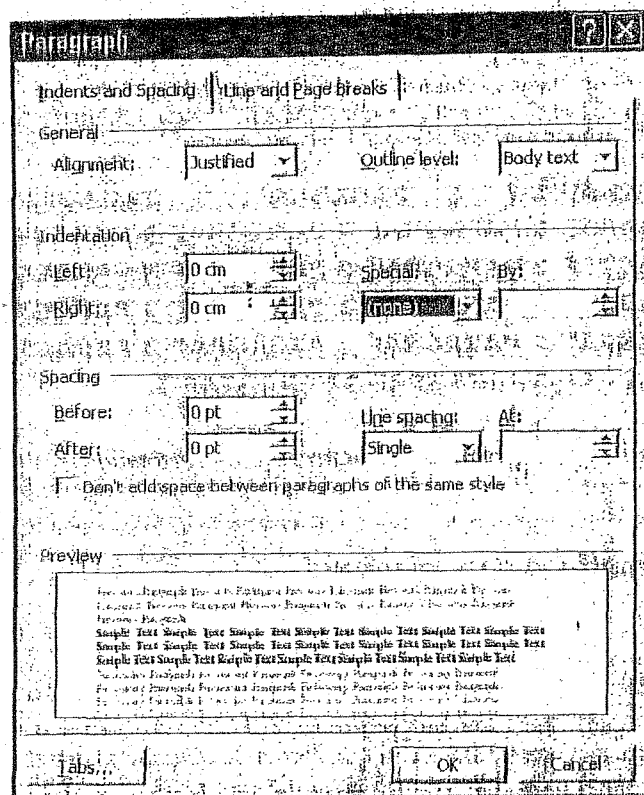 Paragraph
Indents and Spacing Line and Page Breaks
General
Alignment: Justified Outline level: Body text
Indentation
Left: 0 cm Special: By:
Right: 0 cm (none)
Spacing
Before: 0 pt Line spacing: At:
After: 0 pt Single
Don't add space between paragraphs of the same style
Preview
Sample Text Sample Text Sample Text Sample Text Sample Text Sample Text Sample Text
Sample Text Sample Text Sample Text Sample Text Sample Text Sample Text Sample Text
Sample Text Sample Text Sample Text Sample Text Sample Text Sample Text Sample Text
Tabs... OK Cancel